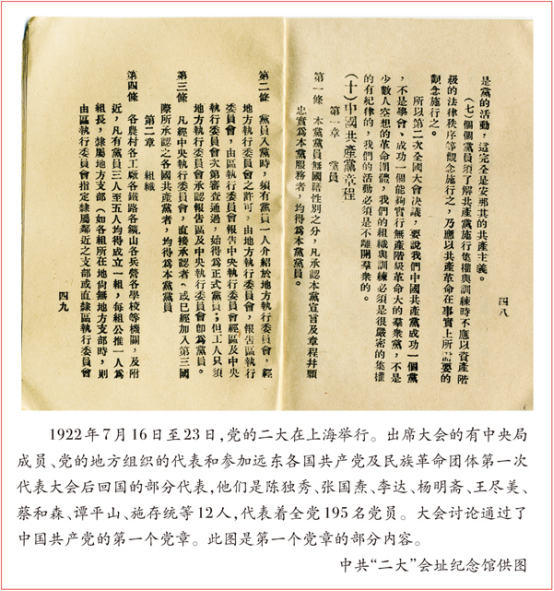 四八
是黨的活動，這完全是安那其的共產主義。
（七）個個黨員須了解共產黨施行集權與訓練時不應以資產階
級的法律秩序等觀念施行之，乃應以共產革命在事實上所需要的
觀念施行之。
所以第二次全國大會决議，要說我們中國共產黨成功一個黨
，不是學會、成功一個能夠實行無產階級革命大的羣衆黨，不是
少數人空想的革命團體，我們的組織與訓練必須是很嚴密的集權
的有杞律的，我們的活動必須是不離開羣衆的。
（十）中國共產黨章程
第一章　黨員
第一條　本黨黨員無國籍性別之分，凡承認本黨宣言及章程并願
忠實爲本黨服務者，均得爲本黨黨員。
第二條　黨員入黨時，須有黨員一人介紹於地方執行委員會，經
地方執行委員會之許可，由地方執行委員會，報告區執行
委員會，由區執行委員會報告中央執行委員會經區及中央
執行委員會次第審查通過，始得爲正式黨員；但工人只須
地方執行委員會承認報告區及中央執行委員會卽爲黨員。
第三條　凡經中央執行委員會，直接承認者，或已經加入第三國
際所承認之各國共產黨者，均得爲本黨黨員
第二章　組織
第四條　各農村各工廠各鐵路各鑛山各兵營各學校等機關，及附
近，凡有黨員三人至五人均得成立一組，每組公推一人爲
組長，隸屬地方支部（如各組所在地尙無地方支部時，則
由區執行委員會指定隸屬鄰近之支部或直隸區執行委員會
四九
1922年7月16日至23日，党的二大在上海举行。出席大会的有中央局
成员、党的地方组织的代表和参加远东各国共产党及民族革命团体第一次
代表大会后回国的部分代表，他们是陈独秀、张国焘、李达、杨明斋、王尽美、
蔡和森、谭平山、施存统等12人，代表着全党195名党员。大会讨论通过了
中国共产党的第一个党章。此图是第一个党章的部分内容。
中共“二大”会址纪念馆供图